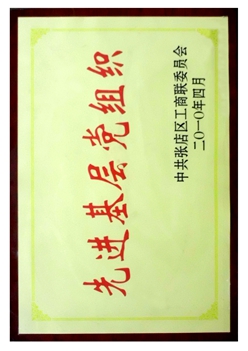 先进基层党组织
中共张店区工商联委员会
二〇一〇年四月